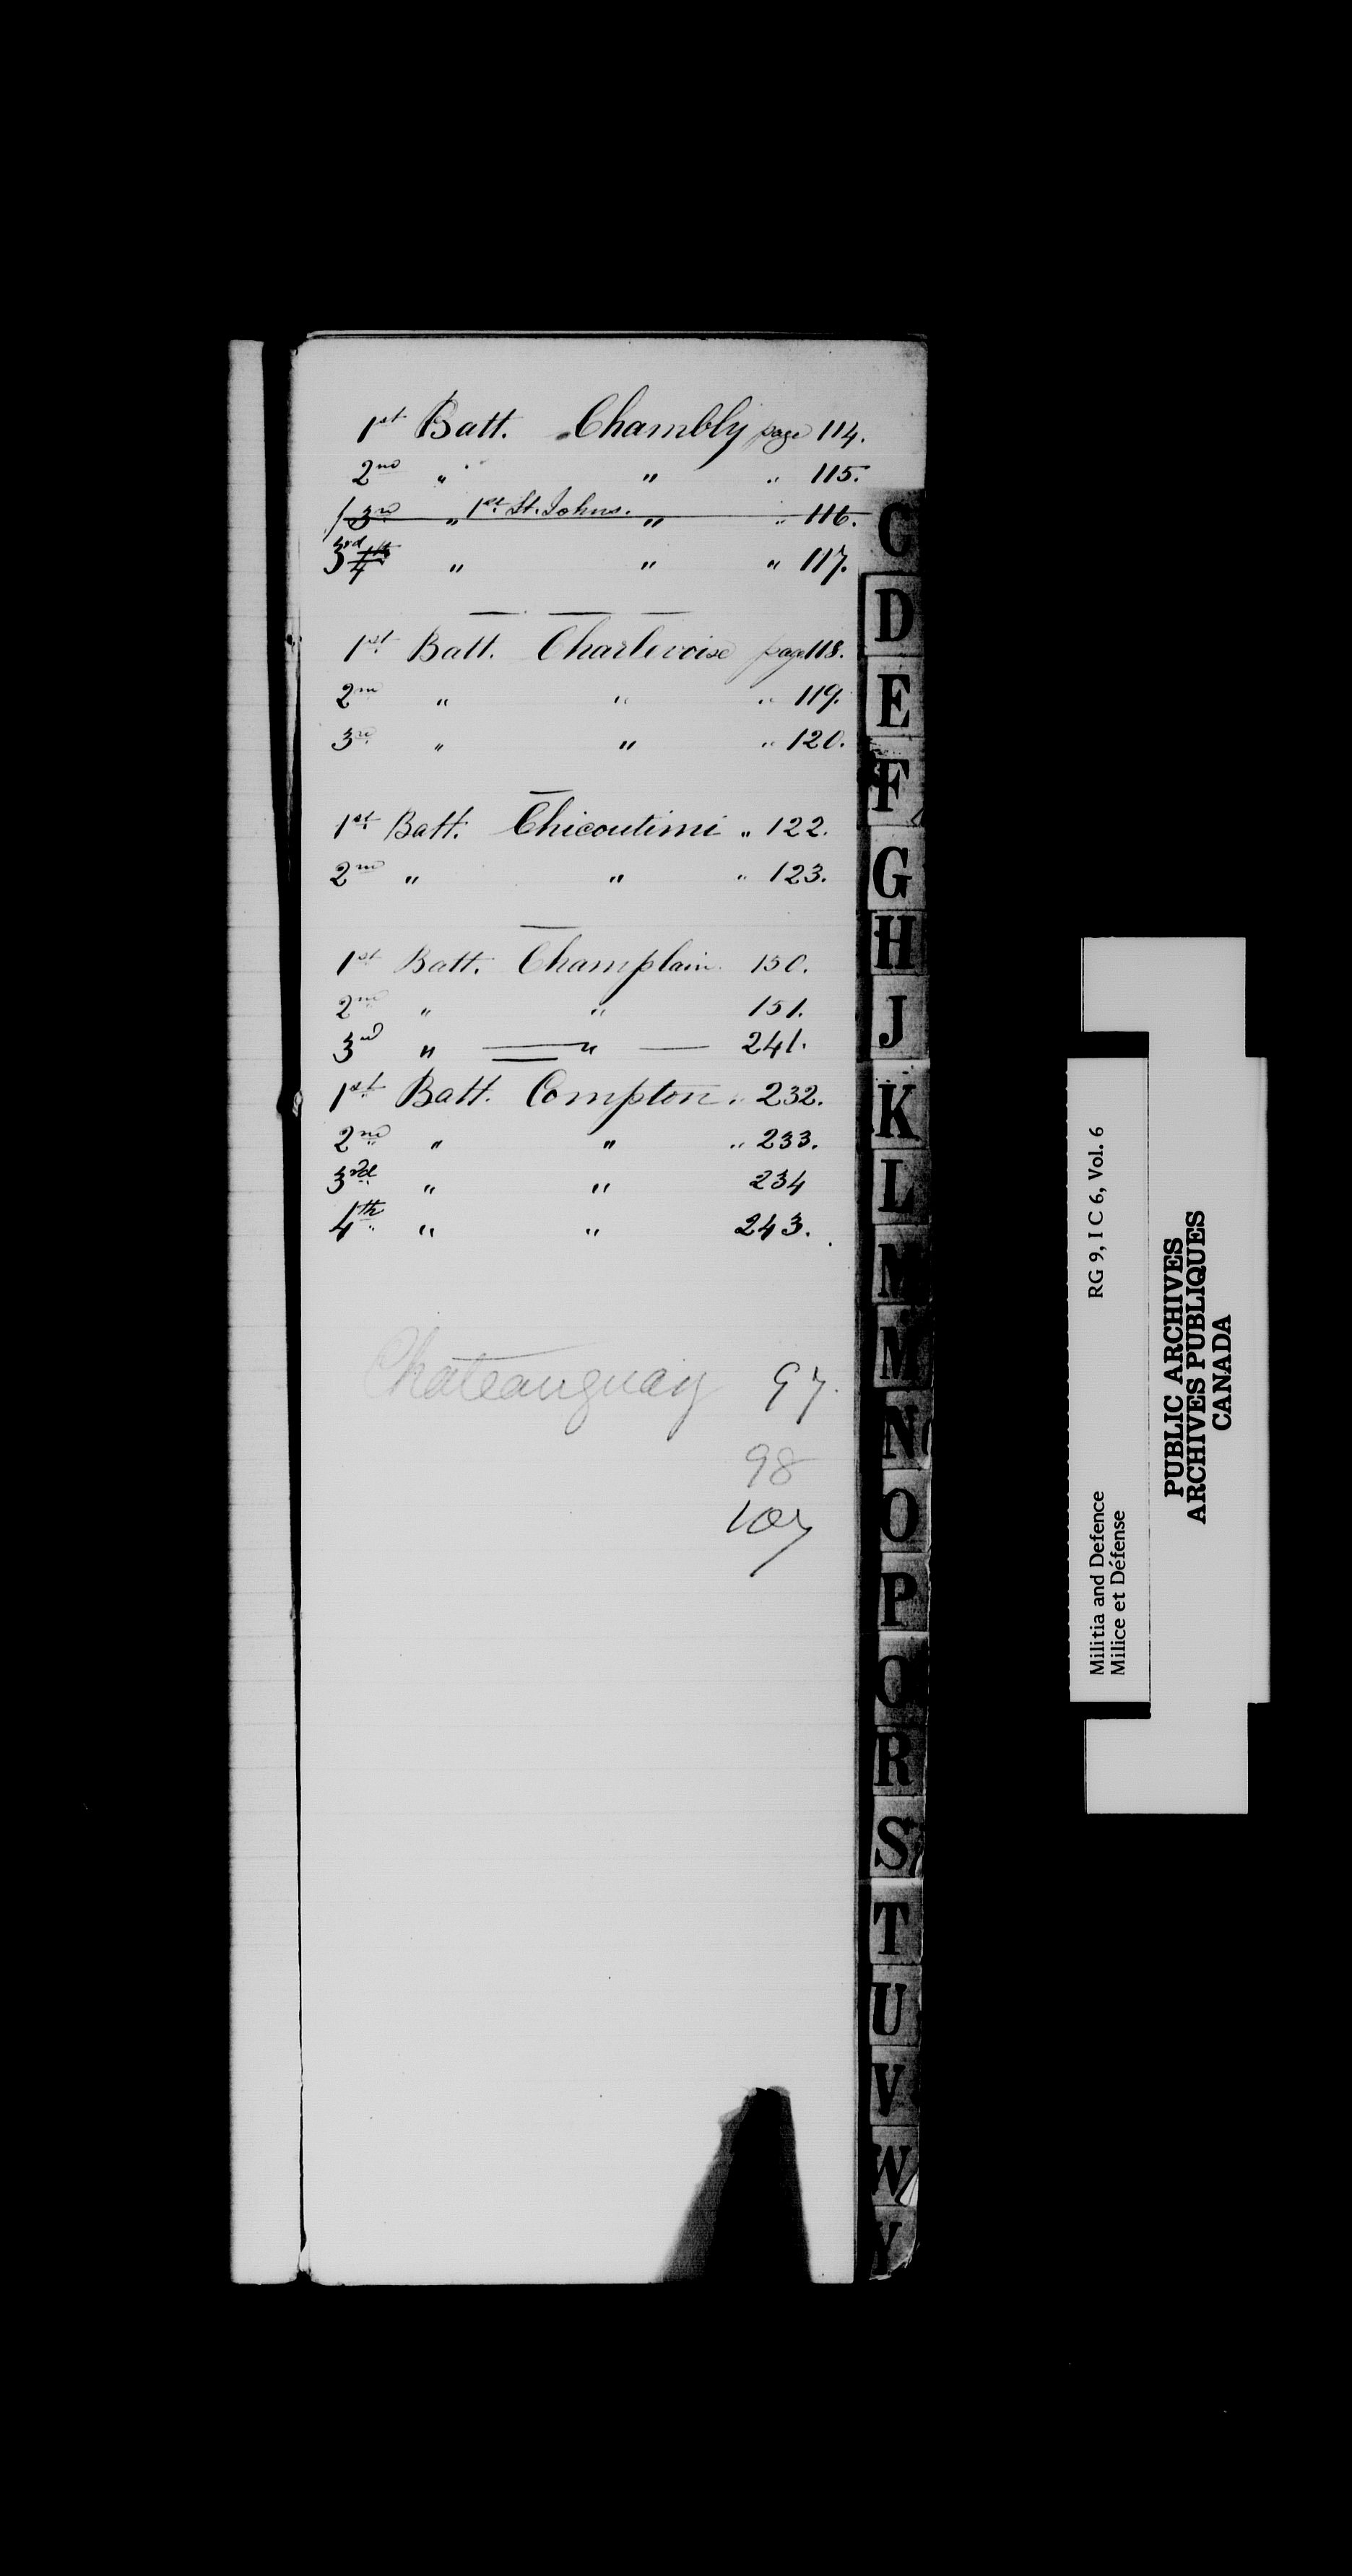 1st Batt. Chambly page 114.
2nd " " " 115.
1st St. Johns.
3rd " " " 116.
3rd 4th " " " 117.
1st Batt. Charlevoise page 118.
2nd " " " 119.
3rd " " " 120.
1st Batt. Chicoutimi " 122.
2nd " " " 123.
1st Batt. Champlain. 150.
2nd " " 151.
3rd " " 241.
1st Batt. Compton " 232.
2nd " " " 233.
3rd " " 234
4th " " 243.
Chateauguay 97.
98
107
C
D
E
F
G
H
J
K
L
M
M
N
O
P
Q
R
S
T
U
V
W
Y
Militia and Defence RG 9, I C 6, Vol. 6
Milice et Défense
PUBLIC ARCHIVES
ARCHIVES PUBLIQUES
CANADA